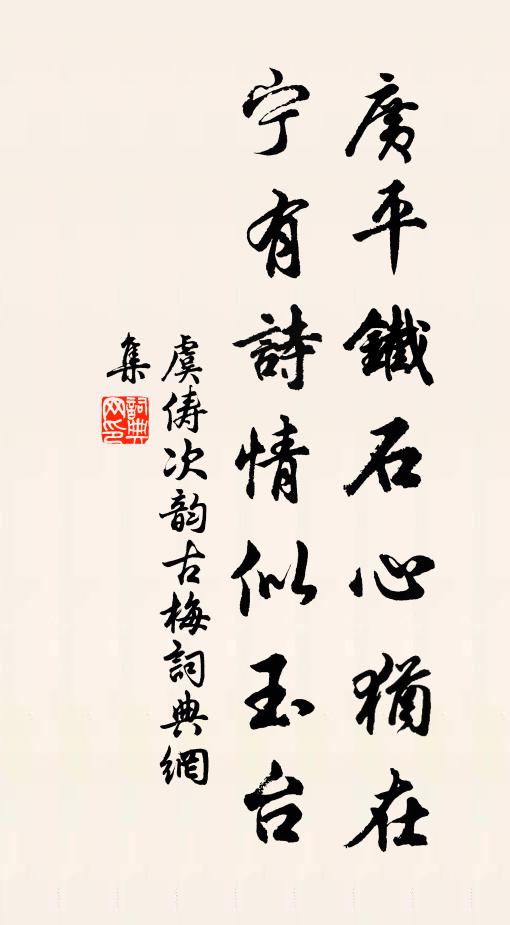 廣平鐵石心猶在
宁有詩情似玉台
虞俦次韵古梅詞典網
集
詞典網印